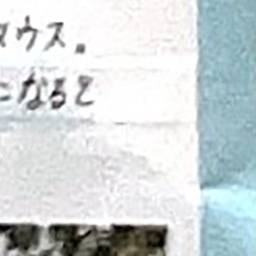 ヌウス。
になると